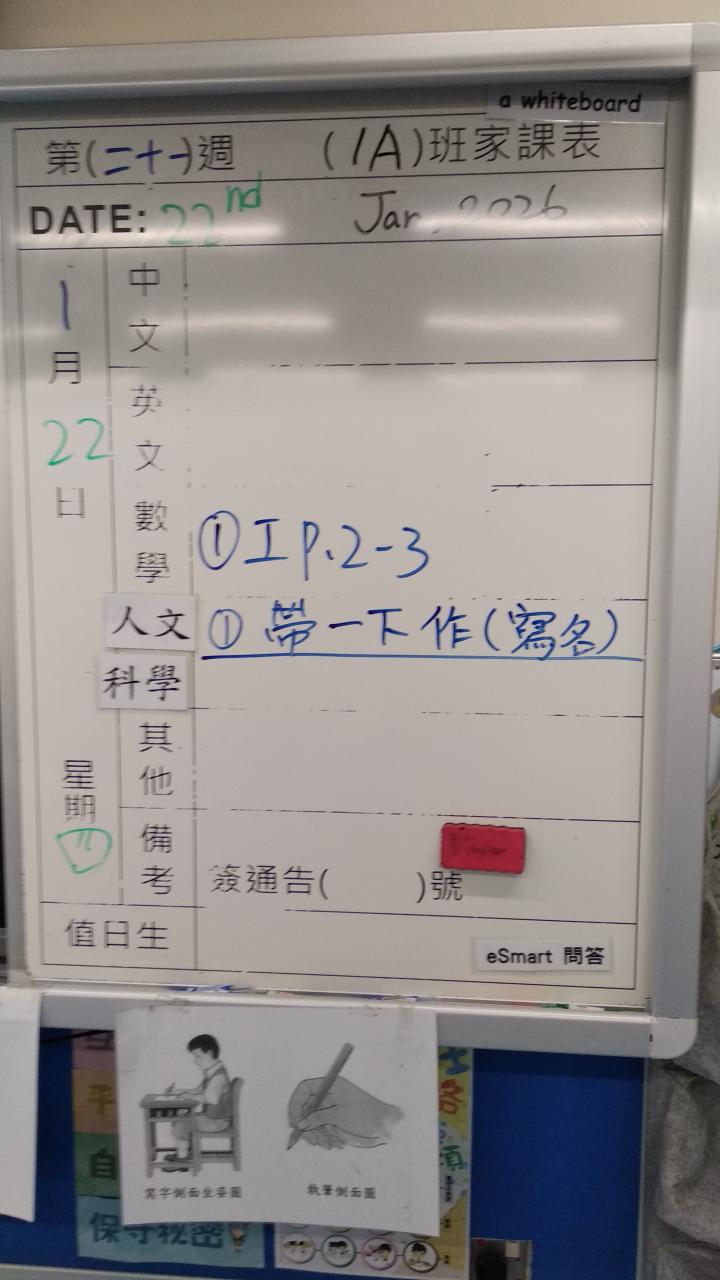 a whiteboard
第(二十一)週 (1A)班家課表
DATE: 22nd Jan. 2026
1月22日
星期
中文
英文
數學 ① 工 P.2-3
人文 ① 帶一下作(寫名)
科學
其他
備考 簽通告( )號
值日生
eSmart 問答
寫字側面坐姿圖
執筆側面圖
保守秘密